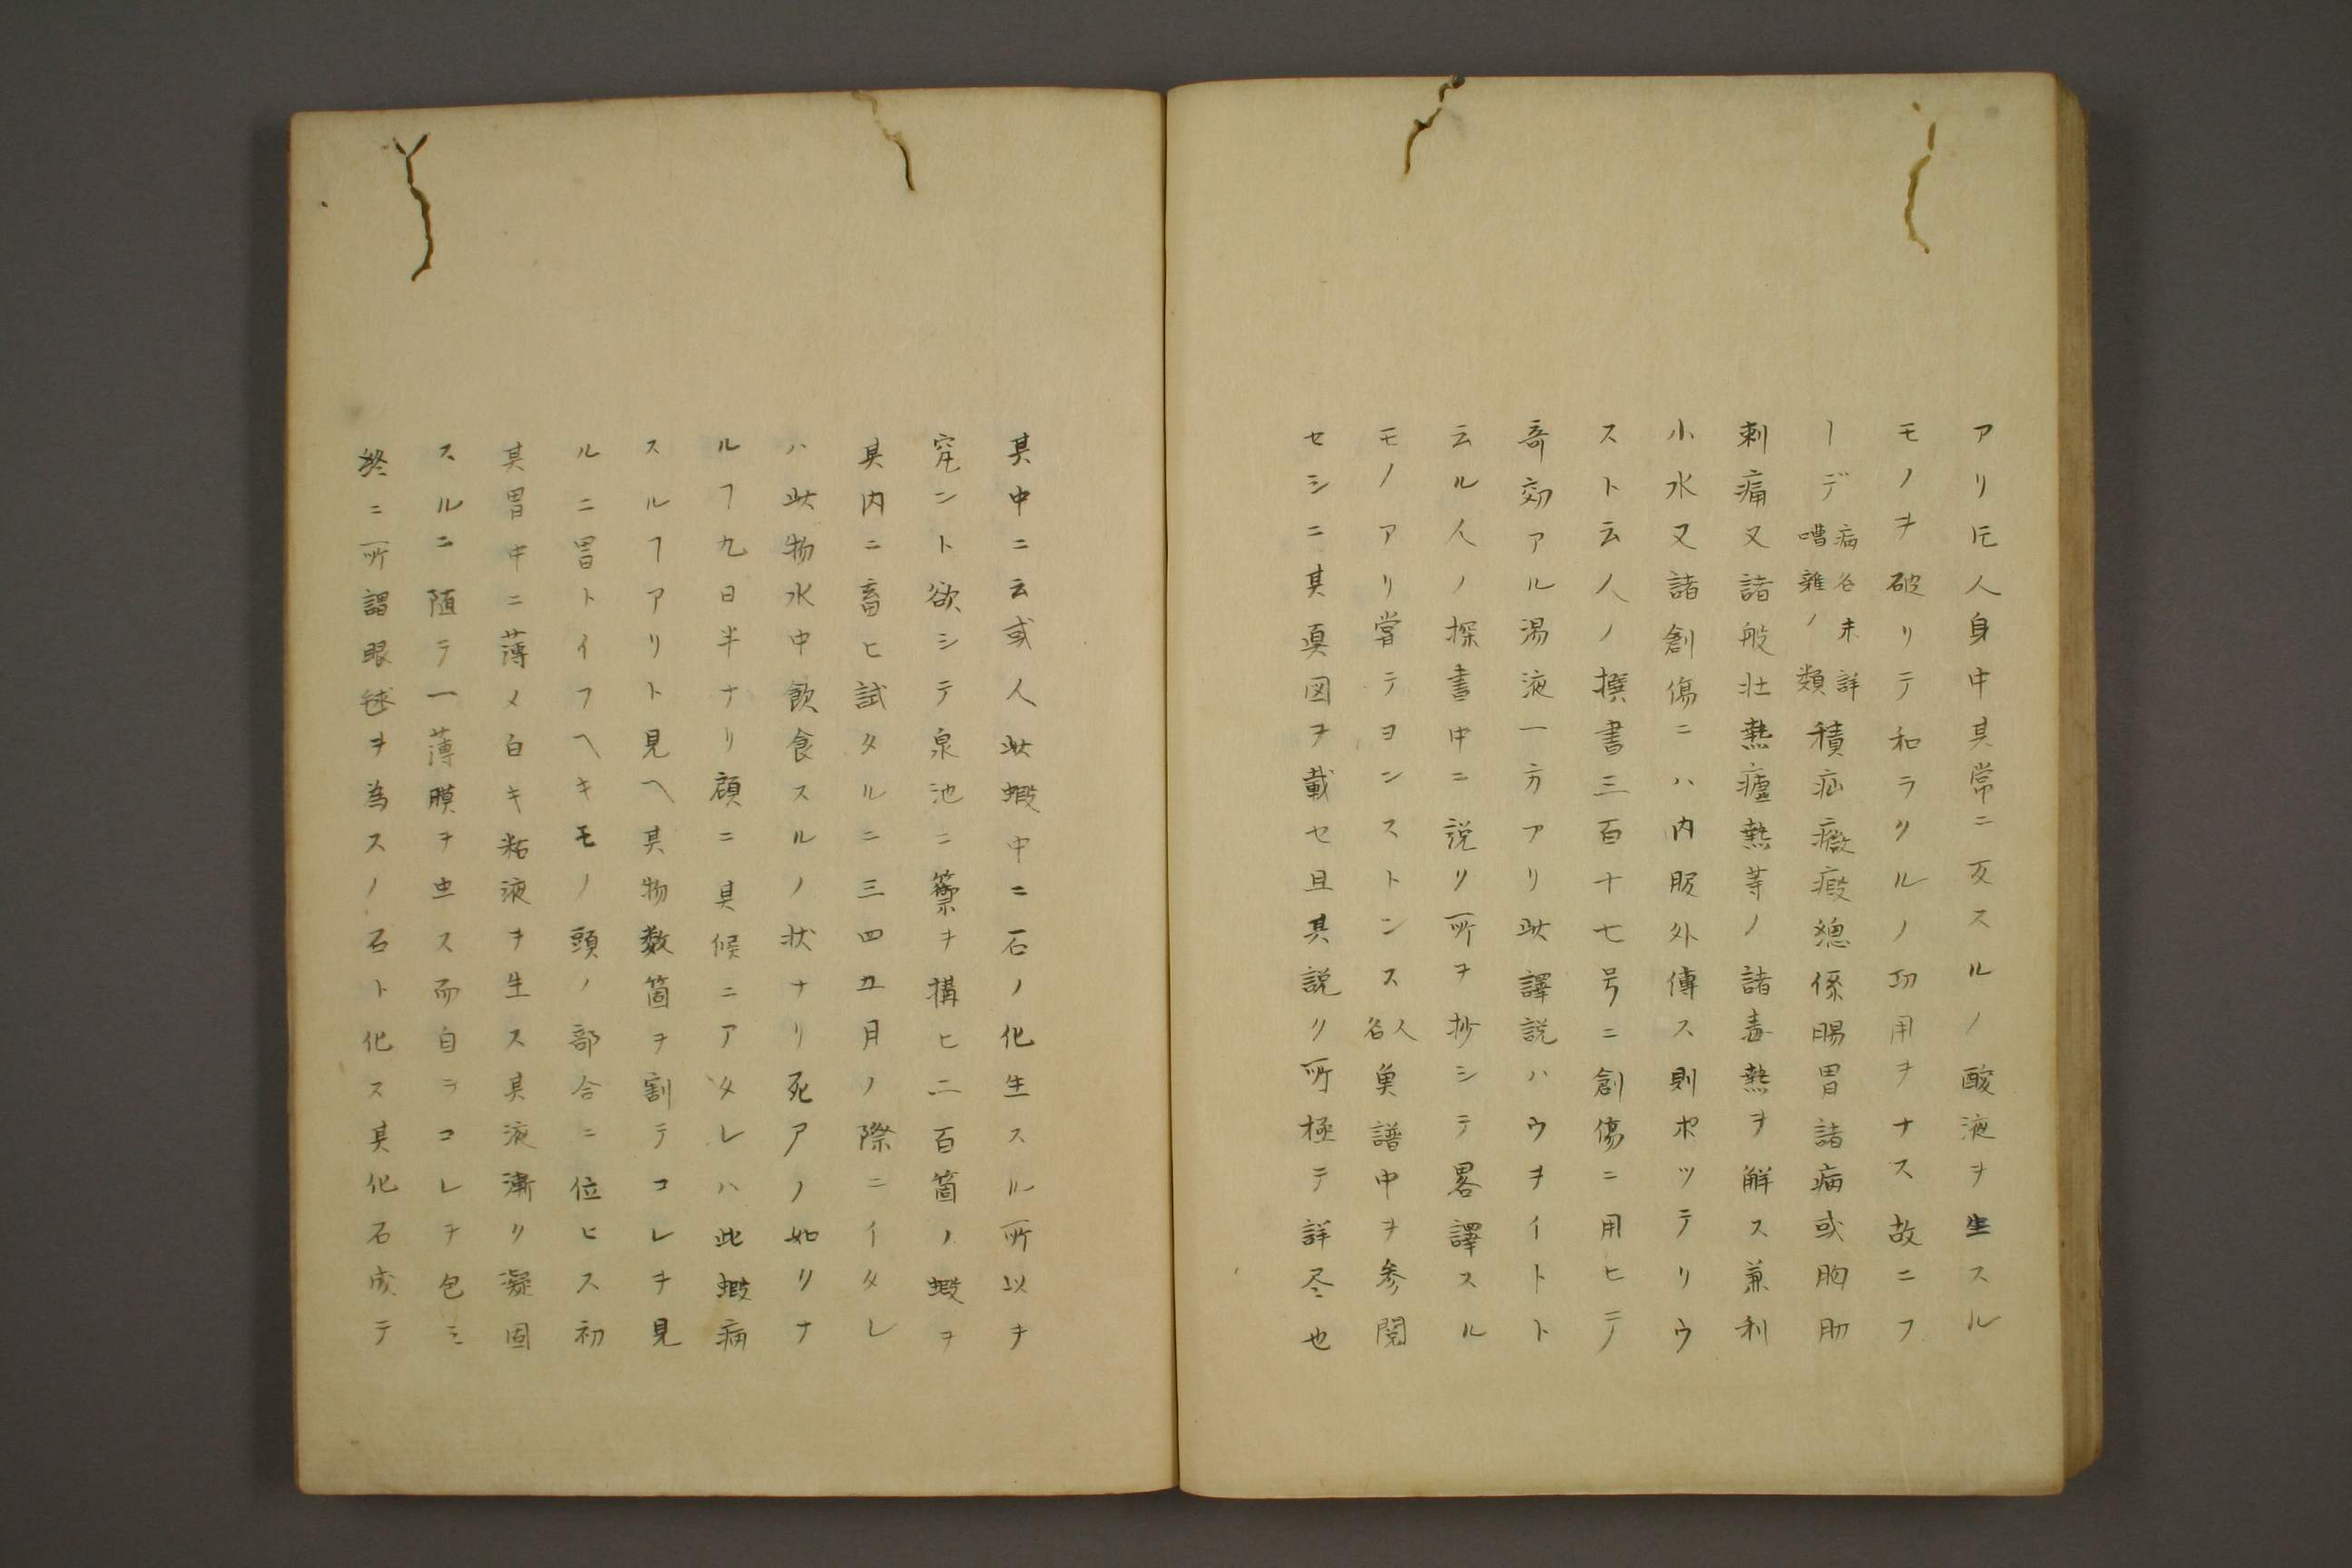 アリ凡人身中其常ニ反スルノ酸液ヲ生スル
モノヲ破リテ和ラクルノ功用ヲナス故ニフ
ーデ病名未詳嘈雜ノ類積疝癥瘕總係腸胃諸病或胸肋
刺痛又諸般壮熱瘧熱等ノ諸毒熱ヲ解ス兼利
小水又諸創傷ニハ内服外傳ス則ポッテリウ
スト云人ノ撰書三百十七号ニ創傷ニ用ヒテ
奇効アル湯液一方アリ此譯説ハウヲイトト
云ル人ノ採書中ニ説リ所ヲ抄シテ畧譯スル
モノアリ嘗テヨンストンス人名魚譜中ヲ参閲
セシニ其真図ヲ載セ且其説ク所極テ詳尽也
其中ニ云或人此蝦中ニ石ノ化生スル所以ヲ
窮ント欲シテ泉池ニ籞ヲ構ヒ二百箇ノ蝦ヲ
其内ニ畜ヒ試タルニ三四五月ノ際ニイタレ
ハ此物水中飲食スルノ状ナリ死アノ如リナ
ルヿ九日半ナリ顔ニ具候ニアタレハ此蝦病
スルヿアリト見ヘ其物数箇ヲ割テコレヲ見
ルニ胃トイフヘキモノ頭ノ部合ニ位ヒス初
其胃中ニ薄メ白キ粘液ヲ生ス其液漸リ凝固
スルニ随テ一薄膜ヲ虫ス而自ラコレヲ包ミ
終ニ所謂眼毬ヲ為スノ石ト化ス其化石成テ